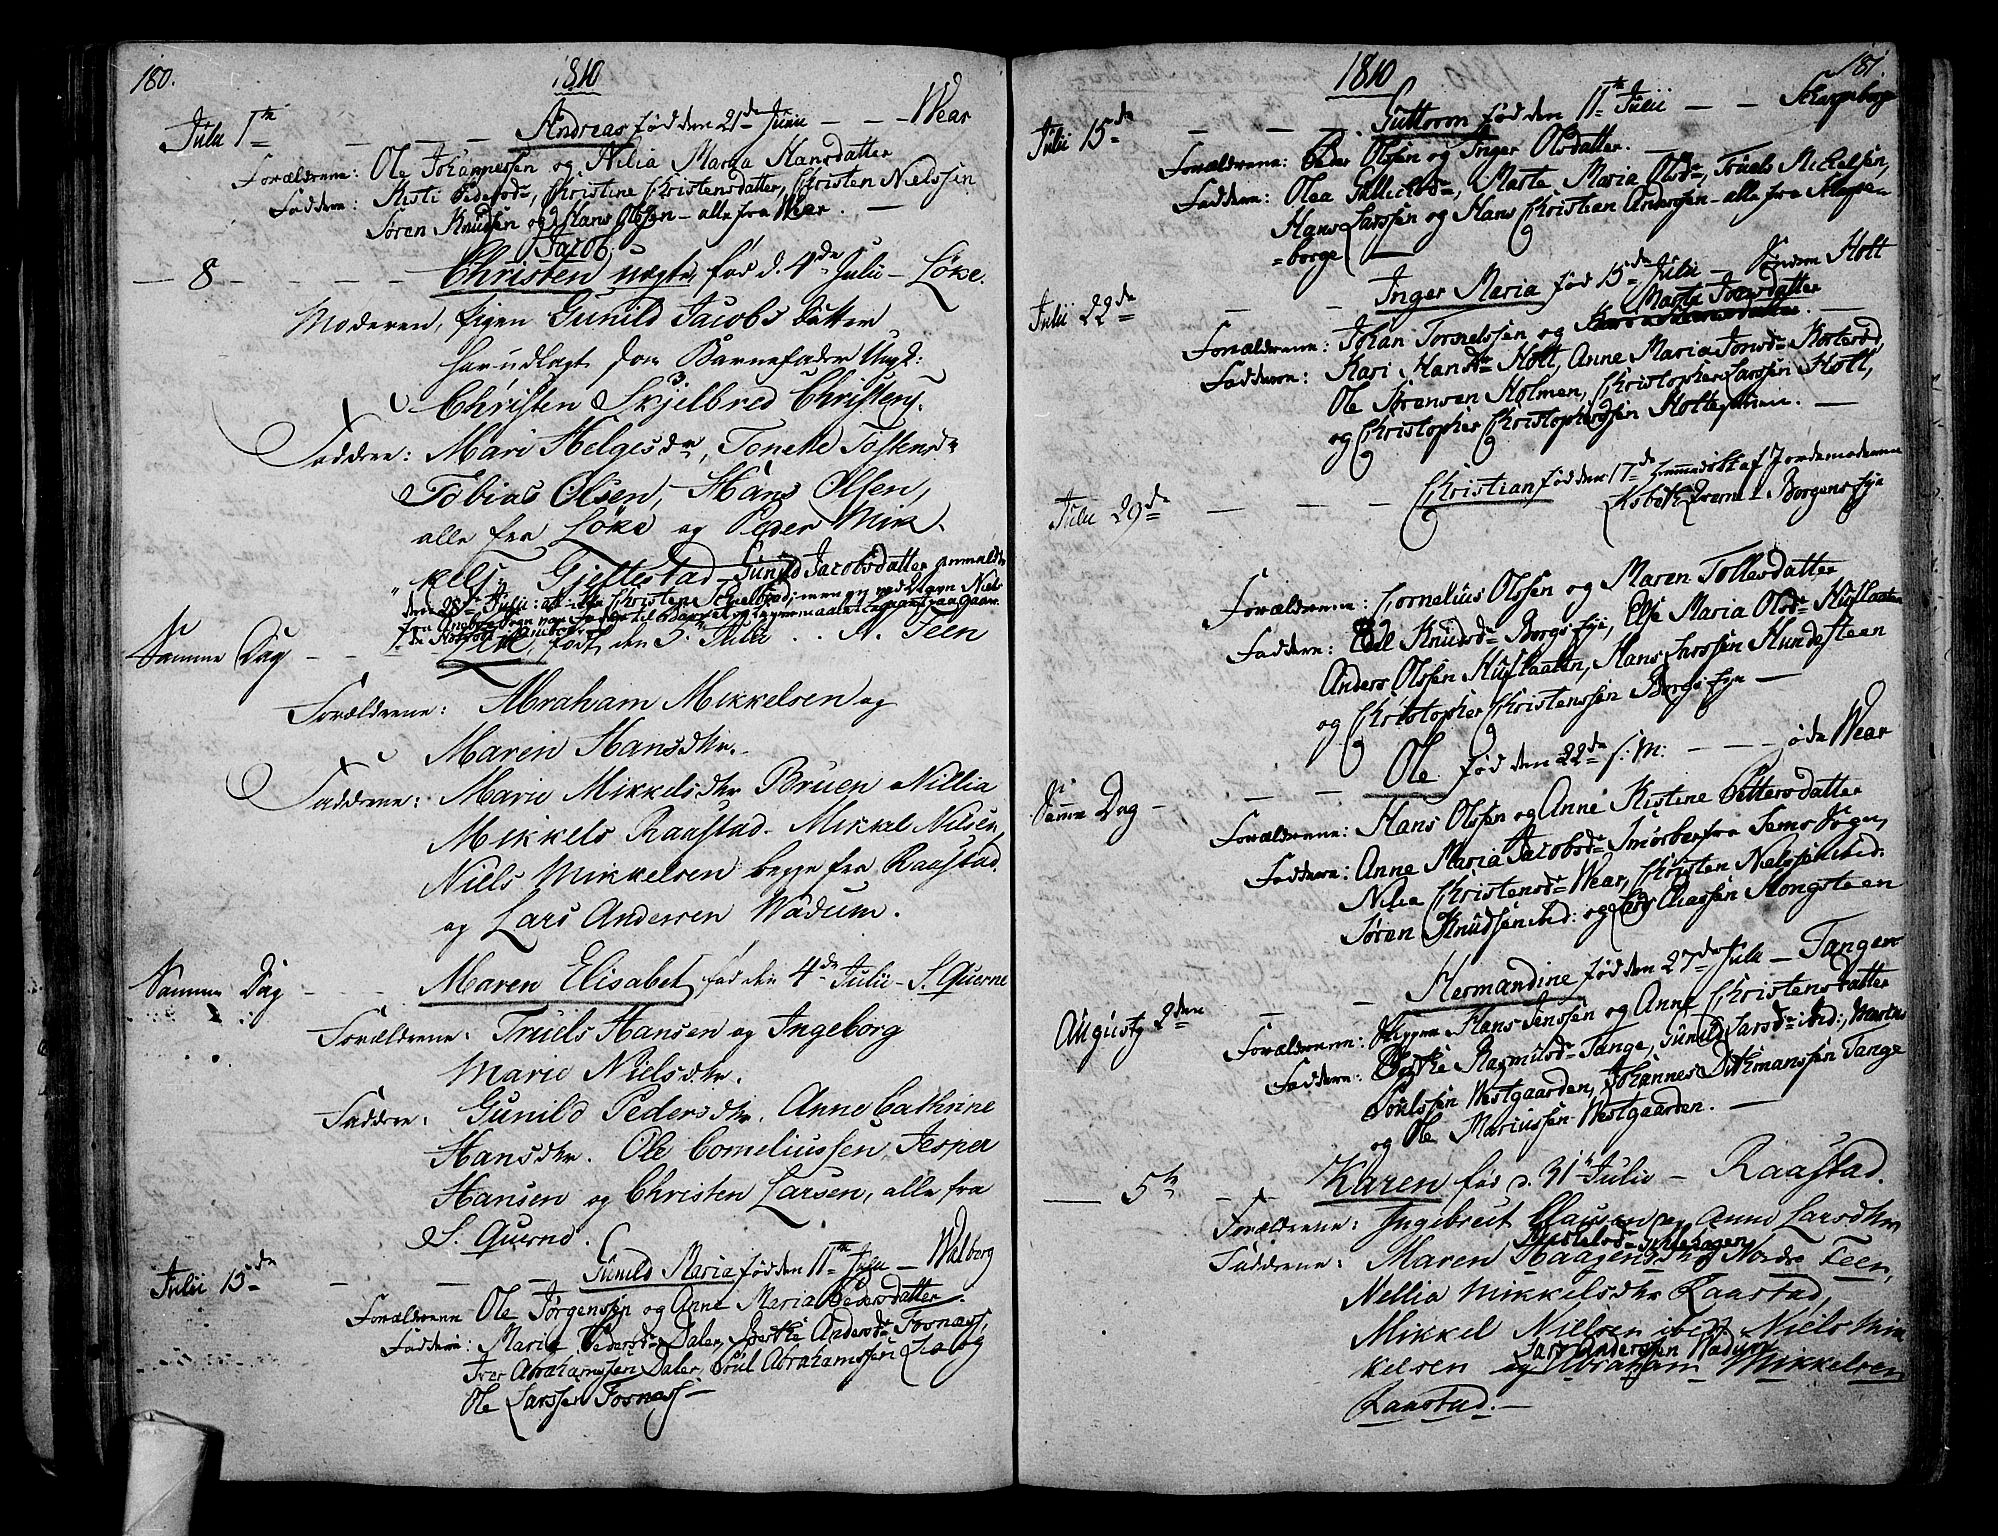 180.
1810
Julii 1te Andreas fød den 21de Junii - - Wear
Forældrene: Ole Johannessen og Nilia Maria Hansdatter
Faddere: Kisti Pedersdr, Christine Christensdatter, Christen Nielssen
Søren Knudsen og Hans Olssen - alle fra Wear. -
Jacob
- 8 - - - Christen uægte, fød d. 4de Julii - Løke.
Moderen, Pigen Gunild Jacobs datter
har udlagt som Barnefader Ungk:
Christen Skjelbred Christens.
Faddere: Mari Helgesdr, Toneke Tostensdr
Tobias Olsen, Hans Olsen,
alle fra Løke og Peder Mik
kels: Gjeltestad Gunild Jacobsdatter anmeldte
den 28de Julii: at ikke Christen Schielbred, men
født den 5te Julii . . N. Teen
Samme Dag - -
Forældrene: Abraham Mikkelsen og
Maren Hansdtr.
Faddrene: Marie Mikkelsdtr Bruen Nillia
Mikkels Raastad. Mikkel Nilsen,
Niels Mikkelsen begge fra Raastad.
og Lars Andersen Wadum.
Samme Dag - - - Maren Elisabet, fød den 4de Julii - S. Querne
Forældrene: Truels Hansen og Ingeborg
Marie Nielsdtr.
Faddere: Gunild Pedersdtr. Anne Cathrine
Hansdtr. Ole Corneliussen, Jesper
Hansen og Christen Larsen, alle fra
S. Querne.
Julii 15de - - - Gunild Maria fød den 11te Julii - Walberg
Forældrene Ole Jørgensen og Anne Maria Pedersdatter.
Faddere: Maria Pedersdr Daler, Andersdr Fosnass,
Iver Abrahamssen Daler, Poul Abrahamssen og
Ole Larssen Fosnass -
181.
1810
Julii 15de - - - Guttorm fød den 11te Julii - - Scharpeborge
Forældrene: Peder Olssen og Inger Olsdatter.
Faddere: Olea, Marte Maria Olsdr, Truels Michelsen,
Hans Larssen og Hans Christian Anderssen - alle fra Scharpe
=borge -
Julii 22de - - Inger Maria fød 15de Julii - Søndern Holt
Marte Joensdatter
Forældrene: Johan Tornelssen og
Faddere: Kari Hansdr Holt, Anne Maria Jonsdr
Ole Sørensen Holmen, Christopher Larssen Holt,
og Christopher Christophersen Holteshuen. -
Julii 29de - - - Christian fød den 17de hiemmedøbt af Jordemoderen
Lisbeth - Borgens Eje
Forældrene: Cornelius Olssen og Maren Tollefsdatter
Faddere: Edel Knudsdr Borgs Eje, Else Maria Olsdr Huslaaten
Anders Olssen Huslaaten, Hans Larssen Hundesteen
og Christopher Christenssen Borgs Eje -
Samme Dag - - - Ole fød den 22de s: M: - - - øde Wear
Forældrene: Hans Olssen og Anne Kistene Pettersdatter
Faddere: Anne Maria Jacobsdr Smørberg fra Sems Sogn,
Nilia Christensdr Wear, Christen Nielssen ibid.
Søren Knudssen ibid: og Lars Classen Kongsteen
Augusty 2den - Hermandine fød den 27de Julii - Tangen
Forældrene: Hans Jenssen og Anne Christensdatter
Faddere: Rasmusdr Tange, Gunild Larsdr ibid:,
Poulssen Westgaarden, Johannes Ditkmanssen Tange
og Ole Mariussen Westgaarden. -
- 5te - - Karen fød d. 31te Julii - Raastad.
Forældrene: Ingebret Clausen og Anne Larsdtr
Faddrene: Maren Haagensdtr Nordre Teen,
Nellia Mikkelsdtr Raastad,
Mikkel Nielsen ibid. Niels Mik
Lars Anderssen Wadum
kelsen og Abraham Mikkelsen
Raastad. -